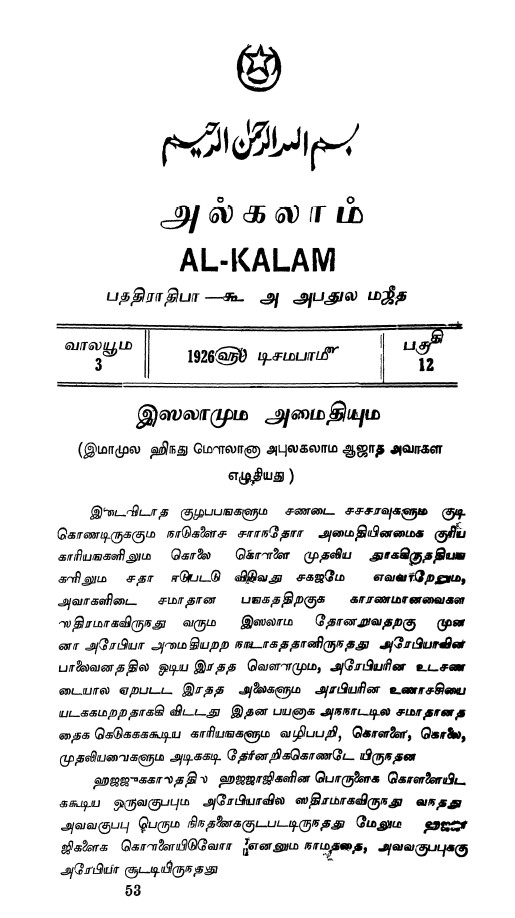 بسم الله الرحمن الرحيم
அல்கலாம்
AL-KALAM
பத்திராதிபா —கூ அ அபதுல மஜீத
வாலயூம 3
1926ஹு டிசமபாமீ
பகுதி 12
இஸலாமும அமைதியும
(இமாமுல ஹிநது மௌலானா அபுலகலாம ஆஜாத அவாகள
எழுதியது)
இடைவிடாத குழபபஙகளும சணடை சசசரவுகளும குடி
கொணடிருககும நாடுகளைச சாாநதோா அமைதியினமைக குரிய
காரியஙகளிலும கொலை கொளளை முதலிய தூாகிருததியங
களிலும சதா ஈடுபடடு விடுவது சகஜமே எவவாறேனும,
அவாகளிடை சமாதான பஙகததிறகுக காரணமானவைகள
ஸதிரமாகவிருநது வரும இஸலாம தோனறுவதறகு முன
னா அரேபியா அமைதியறற நாடாகததானிருநதது அரேபியாவின
பாலைவனததில ஒடிய இரதத வெளளமும, அரேபியரின உடசண
டையால ஏறபடட இரதத அலைகளும அரபியரின உணாசசியை
யடககமறறதாககி விடடது இதன பயனாக அநநாடடில சமாதானத
தைக கெடுககககூடிய காரியஙகளும வழிபபறி, கொளளை, கொலை,
முதலியவைகளும அடிககடி தோனறிககொணடே யிருநதன
ஹஜஜுககாலததில ஹஜஜாஜிகளின பொருளைக கொளளையிட
ககூடிய ஒருவகுபபும அரேபியாவில ஸதிரமாகவிருநது வநதது
அவவகுபபு பெரும நிநதனைககுடபடடிருநதது மேலும ஹஜஜா
ஜிகளைக கொளளையிடுவோா எனனும நாமததை, அவவகுபபுககு
அரேபியா சூடடியிருநதது
53